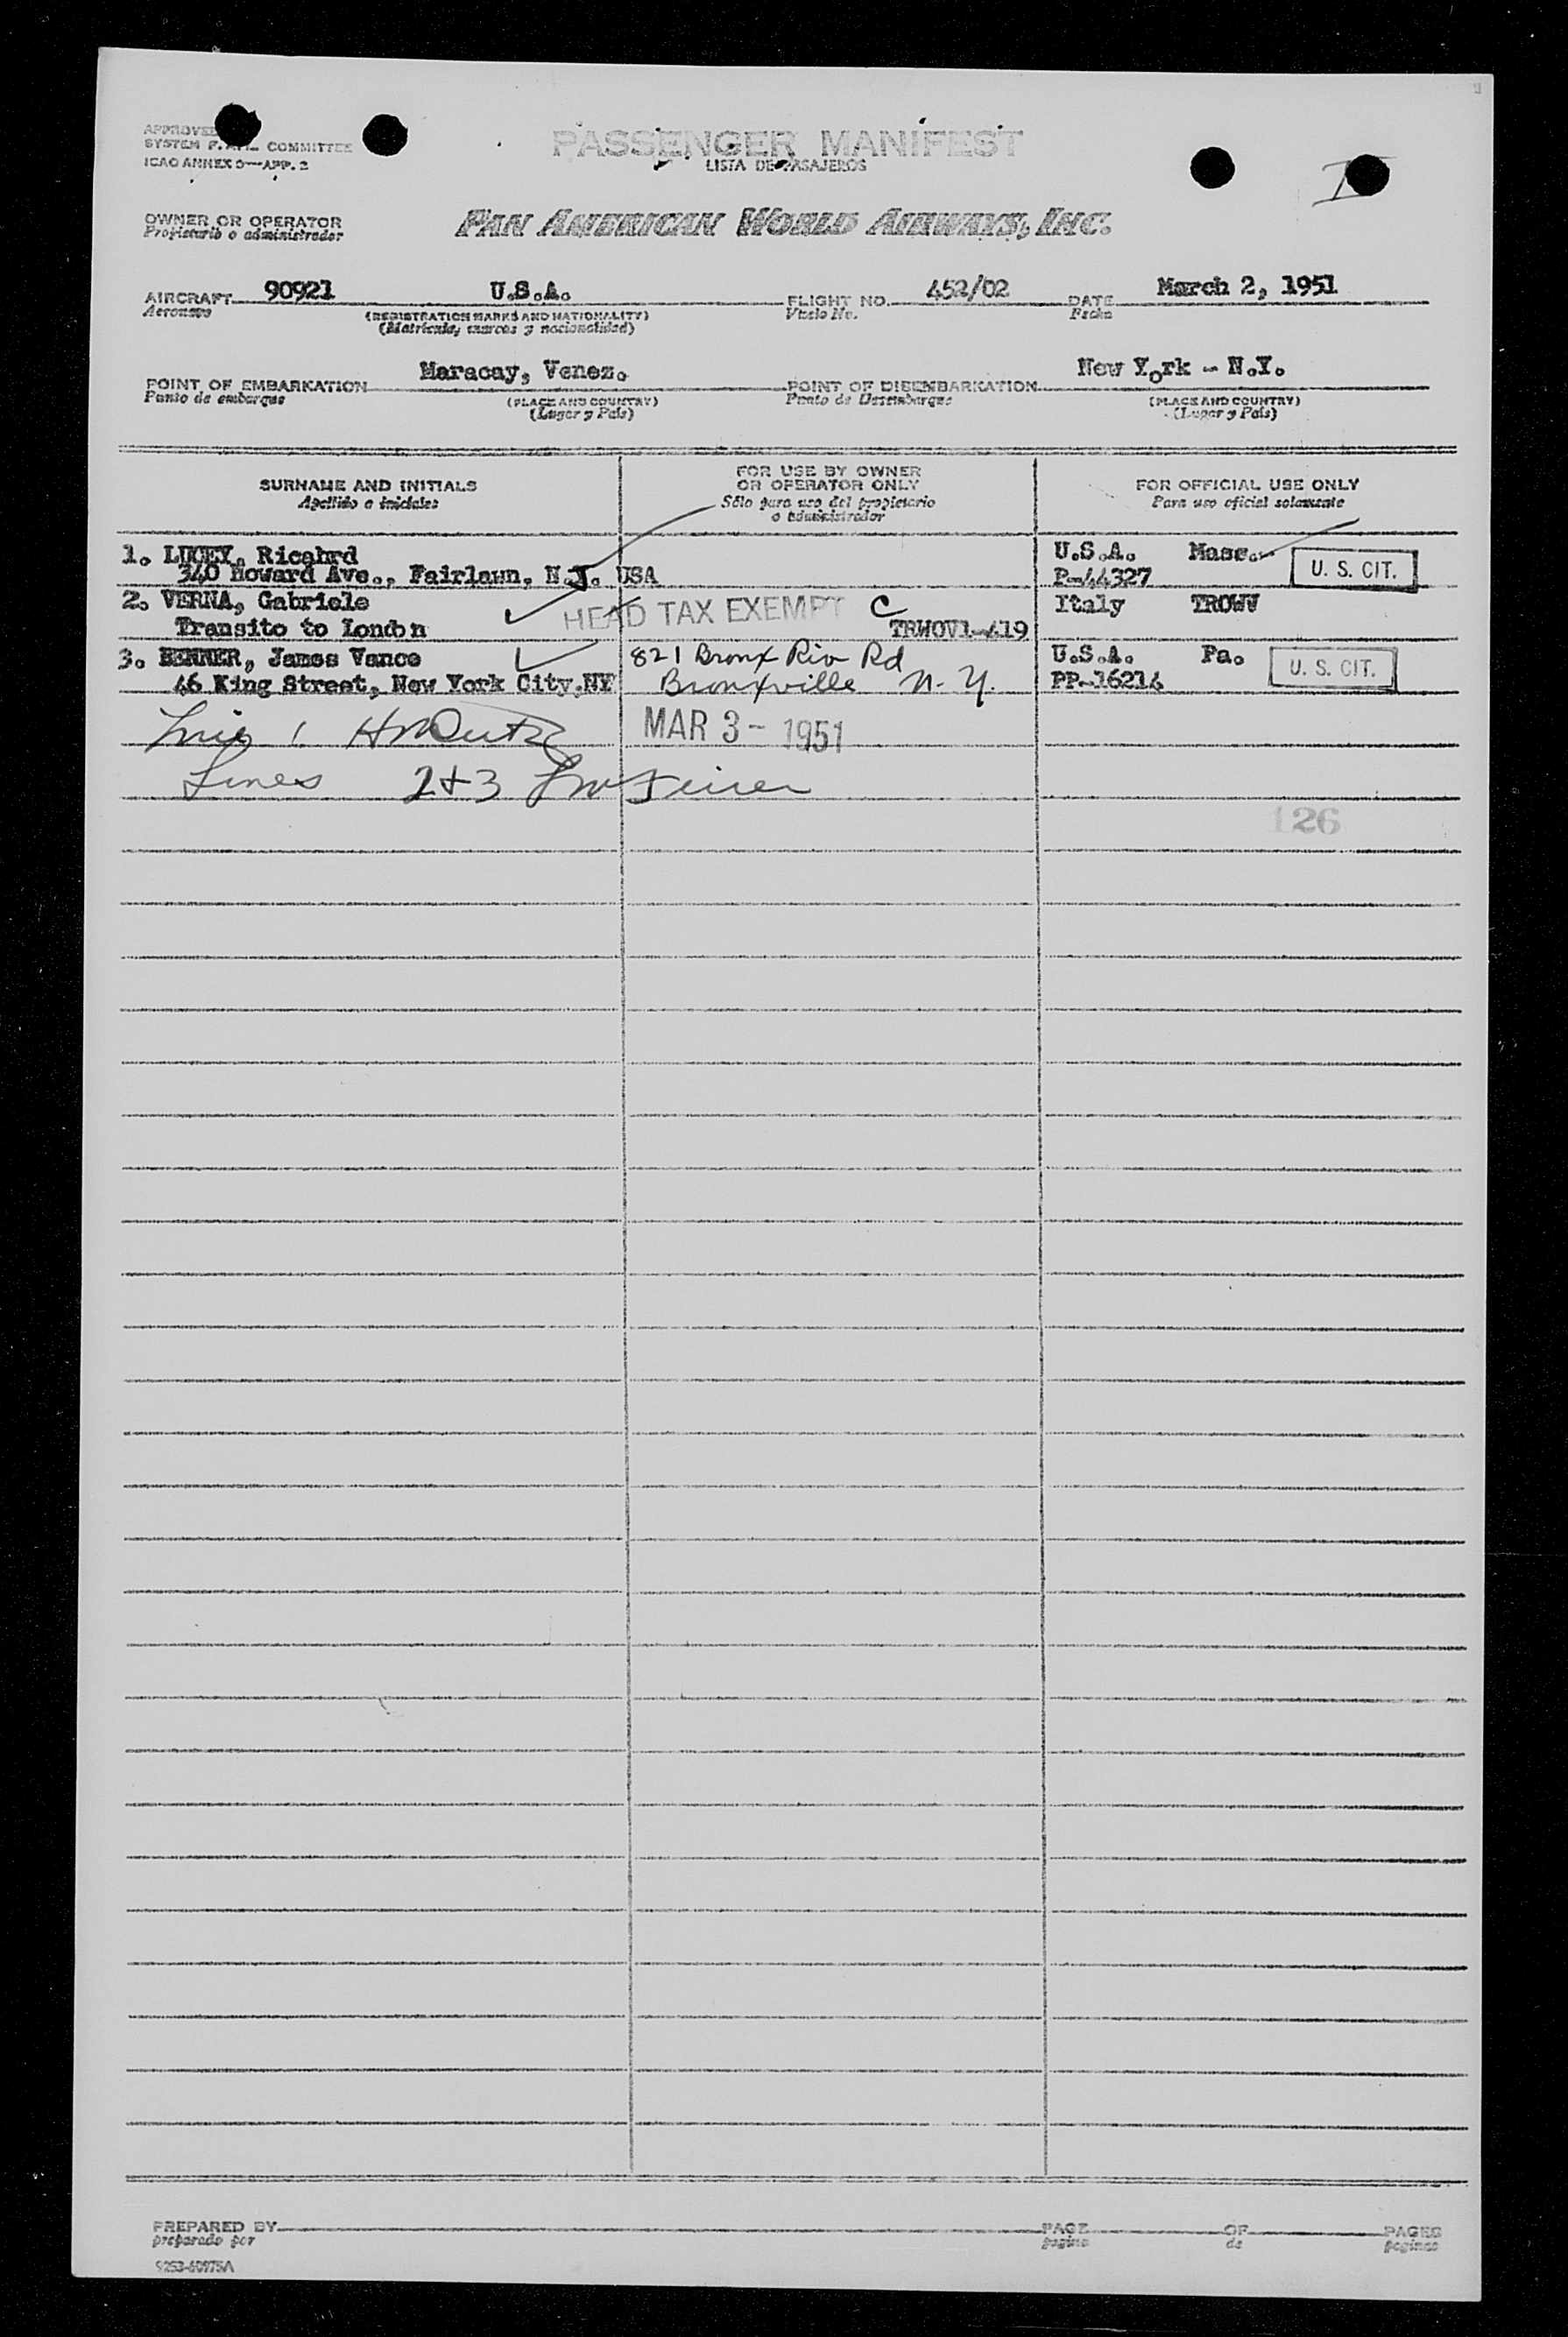 PASSENGER MANIFEST
LISTA DE PASAJEROS
SYSTEM COMMITTEE
ICAO ANNEX 9—APP. 2
OWNER OR OPERATOR
Propietario o administrador
PAN AMERICAN WORLD AIRWAYS, INC.
AIRCRAFT 90921 U.S.A. FLIGHT NO. 452/02 DATE March 2, 1951
Aeronave (REGISTRATION MARKS AND NATIONALITY) Vuelo No. Fecha
(Matrícula, marcas y nacionalidad)
POINT OF EMBARKATION Maracay, Venez. POINT OF DISEMBARKATION New York - N.Y.
Punto de embarque (PLACE AND COUNTRY) Punto de Desembarque (PLACE AND COUNTRY)
(Lugar y País) (Lugar y País)
SURNAME AND INITIALS
Apellido e iniciales
FOR USE BY OWNER
OR OPERATOR ONLY
Sólo para uso del propietario
o administrador
FOR OFFICIAL USE ONLY
Para uso oficial solamente
1. LUCEY, Ricahrd U.S.A. Mass. U. S. CIT.
340 Howard Ave., Fairlawn, N.J. USA P-44327
2. VERNA, Gabriele HEAD TAX EXEMPT C Italy TROWV
Transito to London TRWOV1-419
3. BENNER, James Vance 821 Bronx Riv Rd U.S.A. Pa. U. S. CIT.
46 King Street, New York City,NY Bronxville N.Y. PP-16214
1 MAR 3- 1951
Lines 2+3
126
PREPARED BY PAGE OF PAGES
preparado por pagina de paginas
9253-60975A